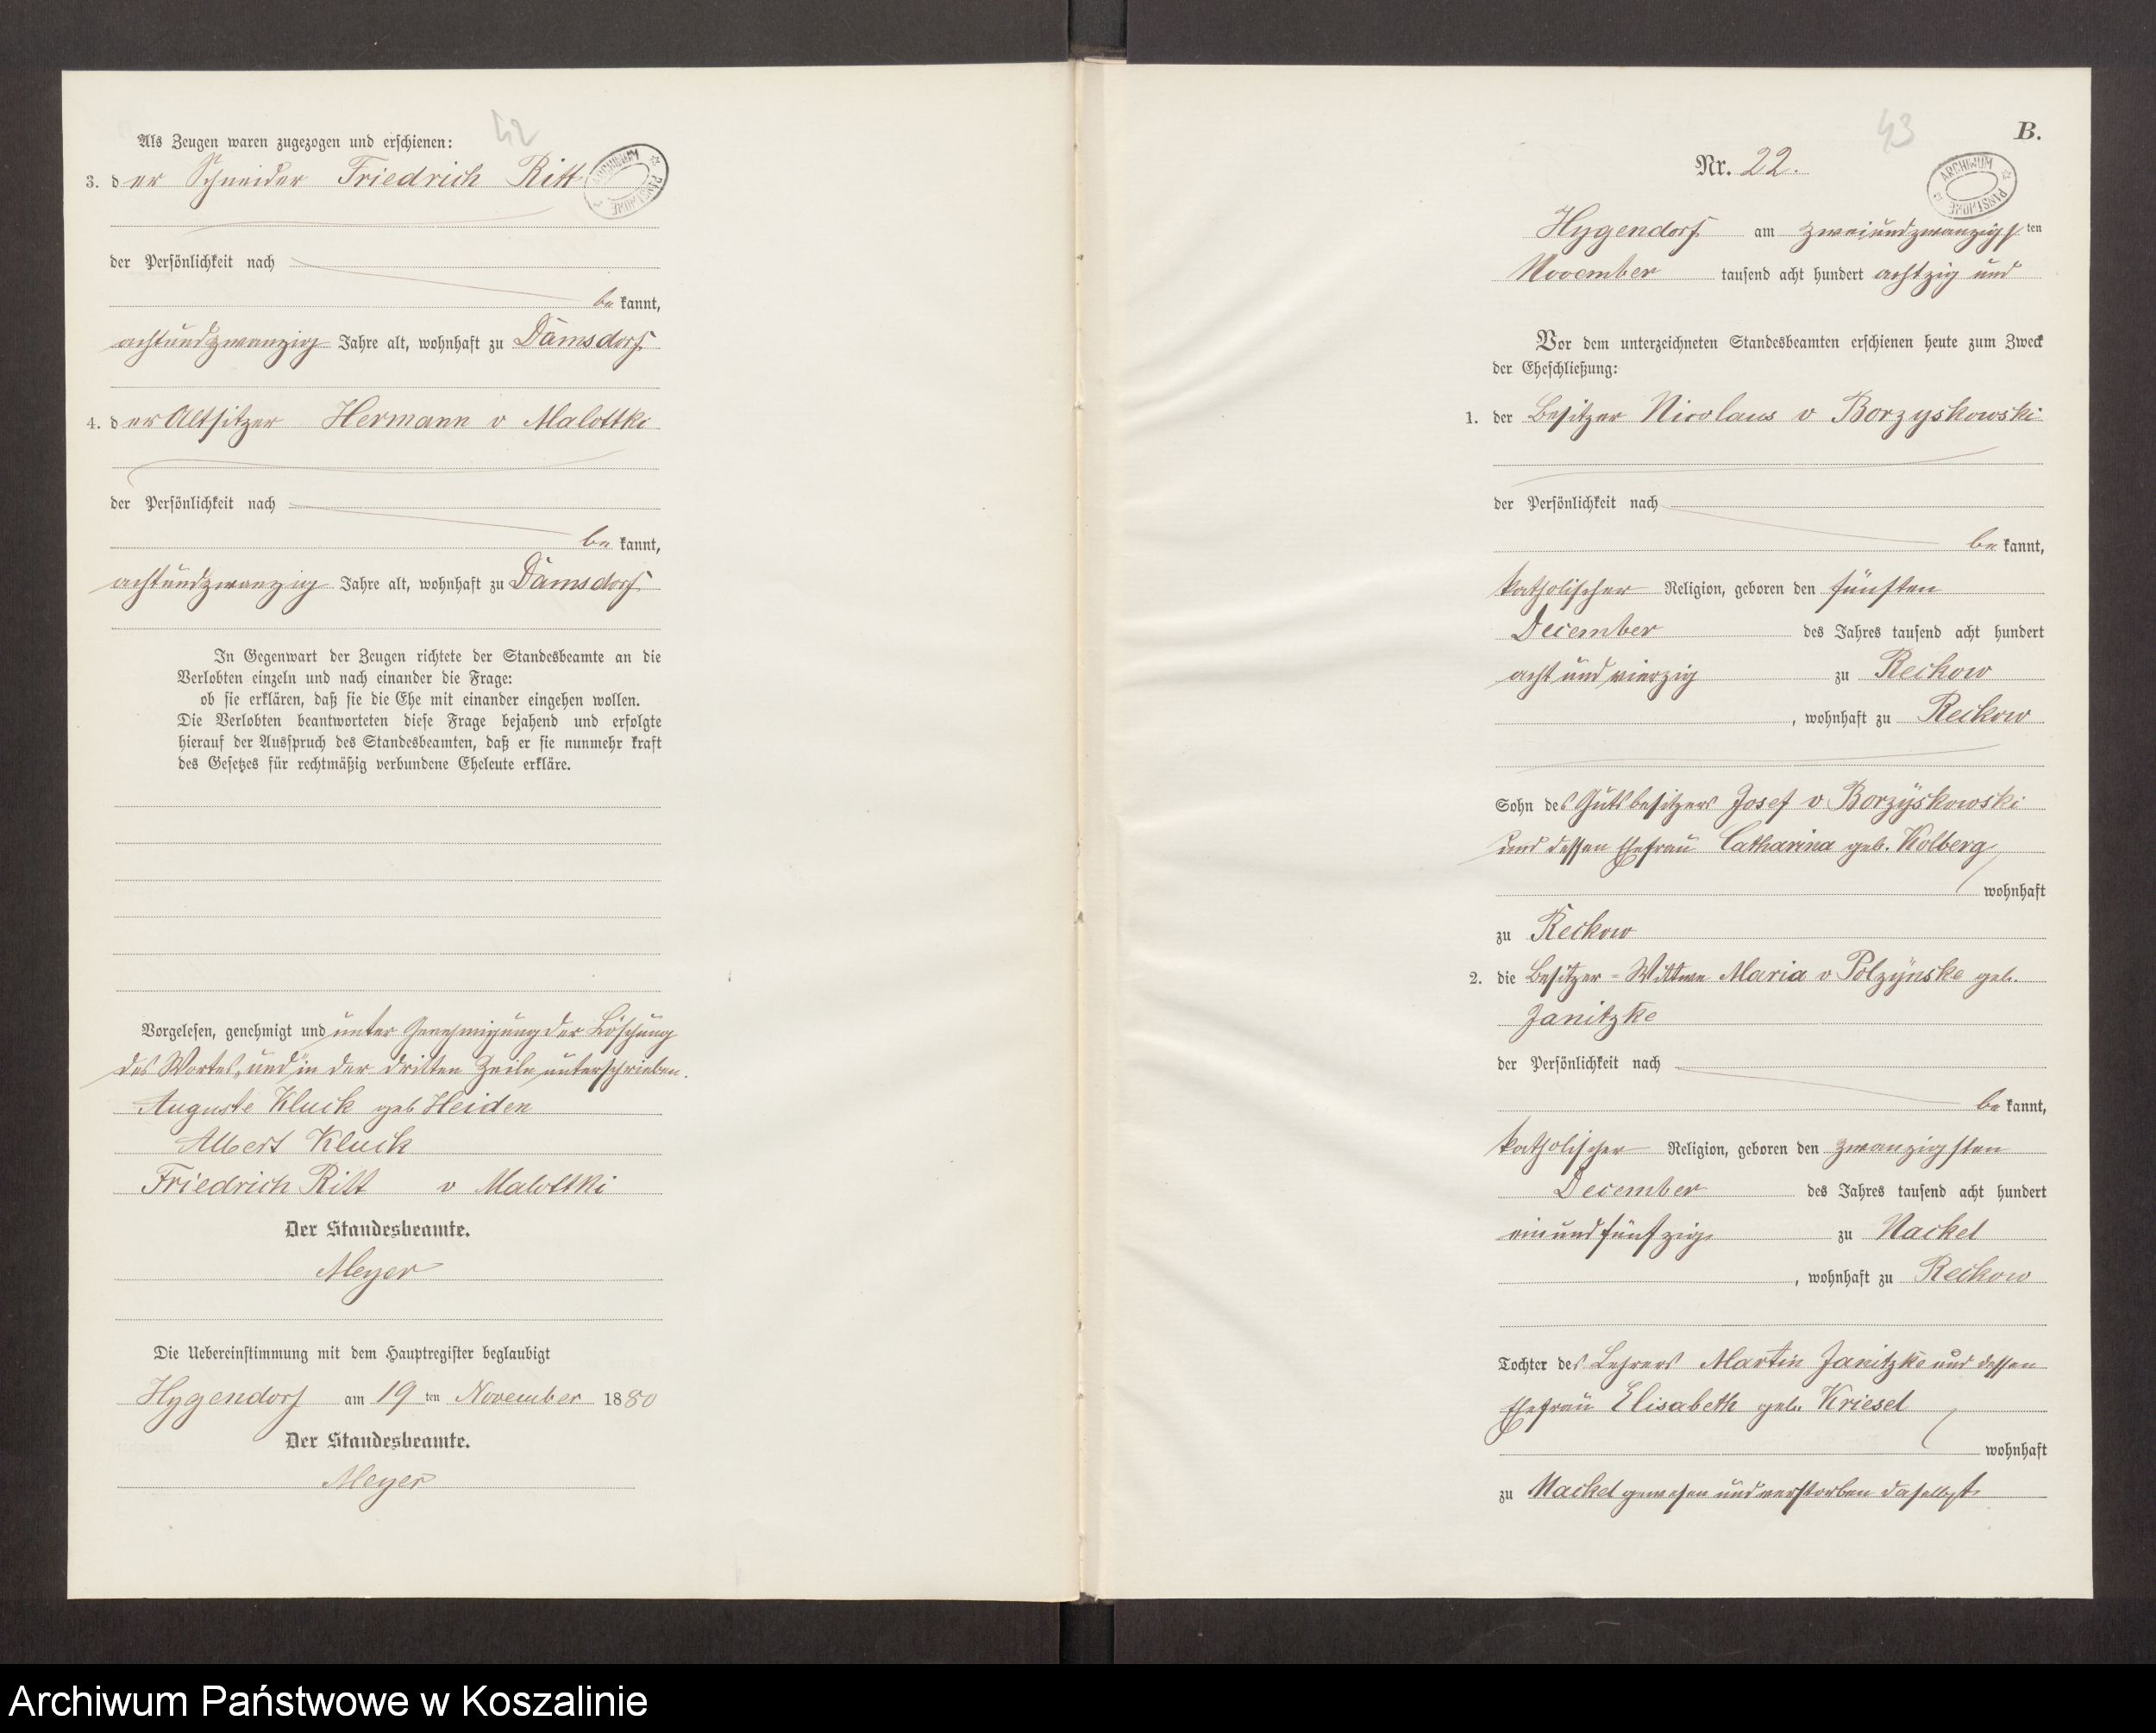 42
Als Zeugen waren zugezogen und erschienen:
3. der Schneider Friedrich Ritt
ARCHIWUM PAŃSTWOWE
der Persönlichkeit nach
bekannt,
achtundzwanzig Jahre alt, wohnhaft zu Damsdorf
4. der Altsitzer Hermann v Malottki
der Persönlichkeit nach
bekannt,
achtundzwanzig Jahre alt, wohnhaft zu Damsdorf
In Gegenwart der Zeugen richtete der Standesbeamte an die
Verlobten einzeln und nach einander die Frage:
ob sie erklären, daß sie die Ehe mit einander eingehen wollen.
Die Verlobten beantworteten diese Frage bejahend und erfolgte
hierauf der Ausspruch des Standesbeamten, daß er sie nunmehr kraft
des Gesetzes für rechtmäßig verbundene Eheleute erkläre.
Vorgelesen, genehmigt und unter Genehmigung der Löschung
des Wortes „und" in der dritten Zeile unterschrieben.
Auguste Kluck geb Heiden
Albert Kluck
Friedrich Ritt v Malottki
Der Standesbeamte.
Meyer
Die Uebereinstimmung mit dem Hauptregister beglaubigt
Hygendorf am 19ten November 1880
Der Standesbeamte.
Meyer
43
B.
Nr. 22.
ARCHIWUM PAŃSTWOWE
Hygendorf am zweiundzwanzigsten
November tausend acht hundert achtzig und
Vor dem unterzeichneten Standesbeamten erschienen heute zum Zweck
der Eheschließung:
1. der Besitzer Nicolaus v Borzyskowski
der Persönlichkeit nach
bekannt,
katholischer Religion, geboren den fünften
December des Jahres tausend acht hundert
acht und vierzig zu Reckow
, wohnhaft zu Reckow
Sohn des Gutsbesitzers Josef v Borzyskowski
und dessen Ehefrau Catharina geb. Kolberg
wohnhaft
zu Reckow
2. die Besitzer-Wittwe Maria v Polzynske geb.
Janitzke
der Persönlichkeit nach
bekannt,
katholischer Religion, geboren den zwanzigsten
December des Jahres tausend acht hundert
einundfünfzig zu Nackel
, wohnhaft zu Reckow
Tochter des Lehrers Martin Janitzke und dessen
Ehefrau Elisabeth geb. Kriesel
wohnhaft
zu Nackel gewesen und verstorben daselbst
Archiwum Państwowe w Koszalinie